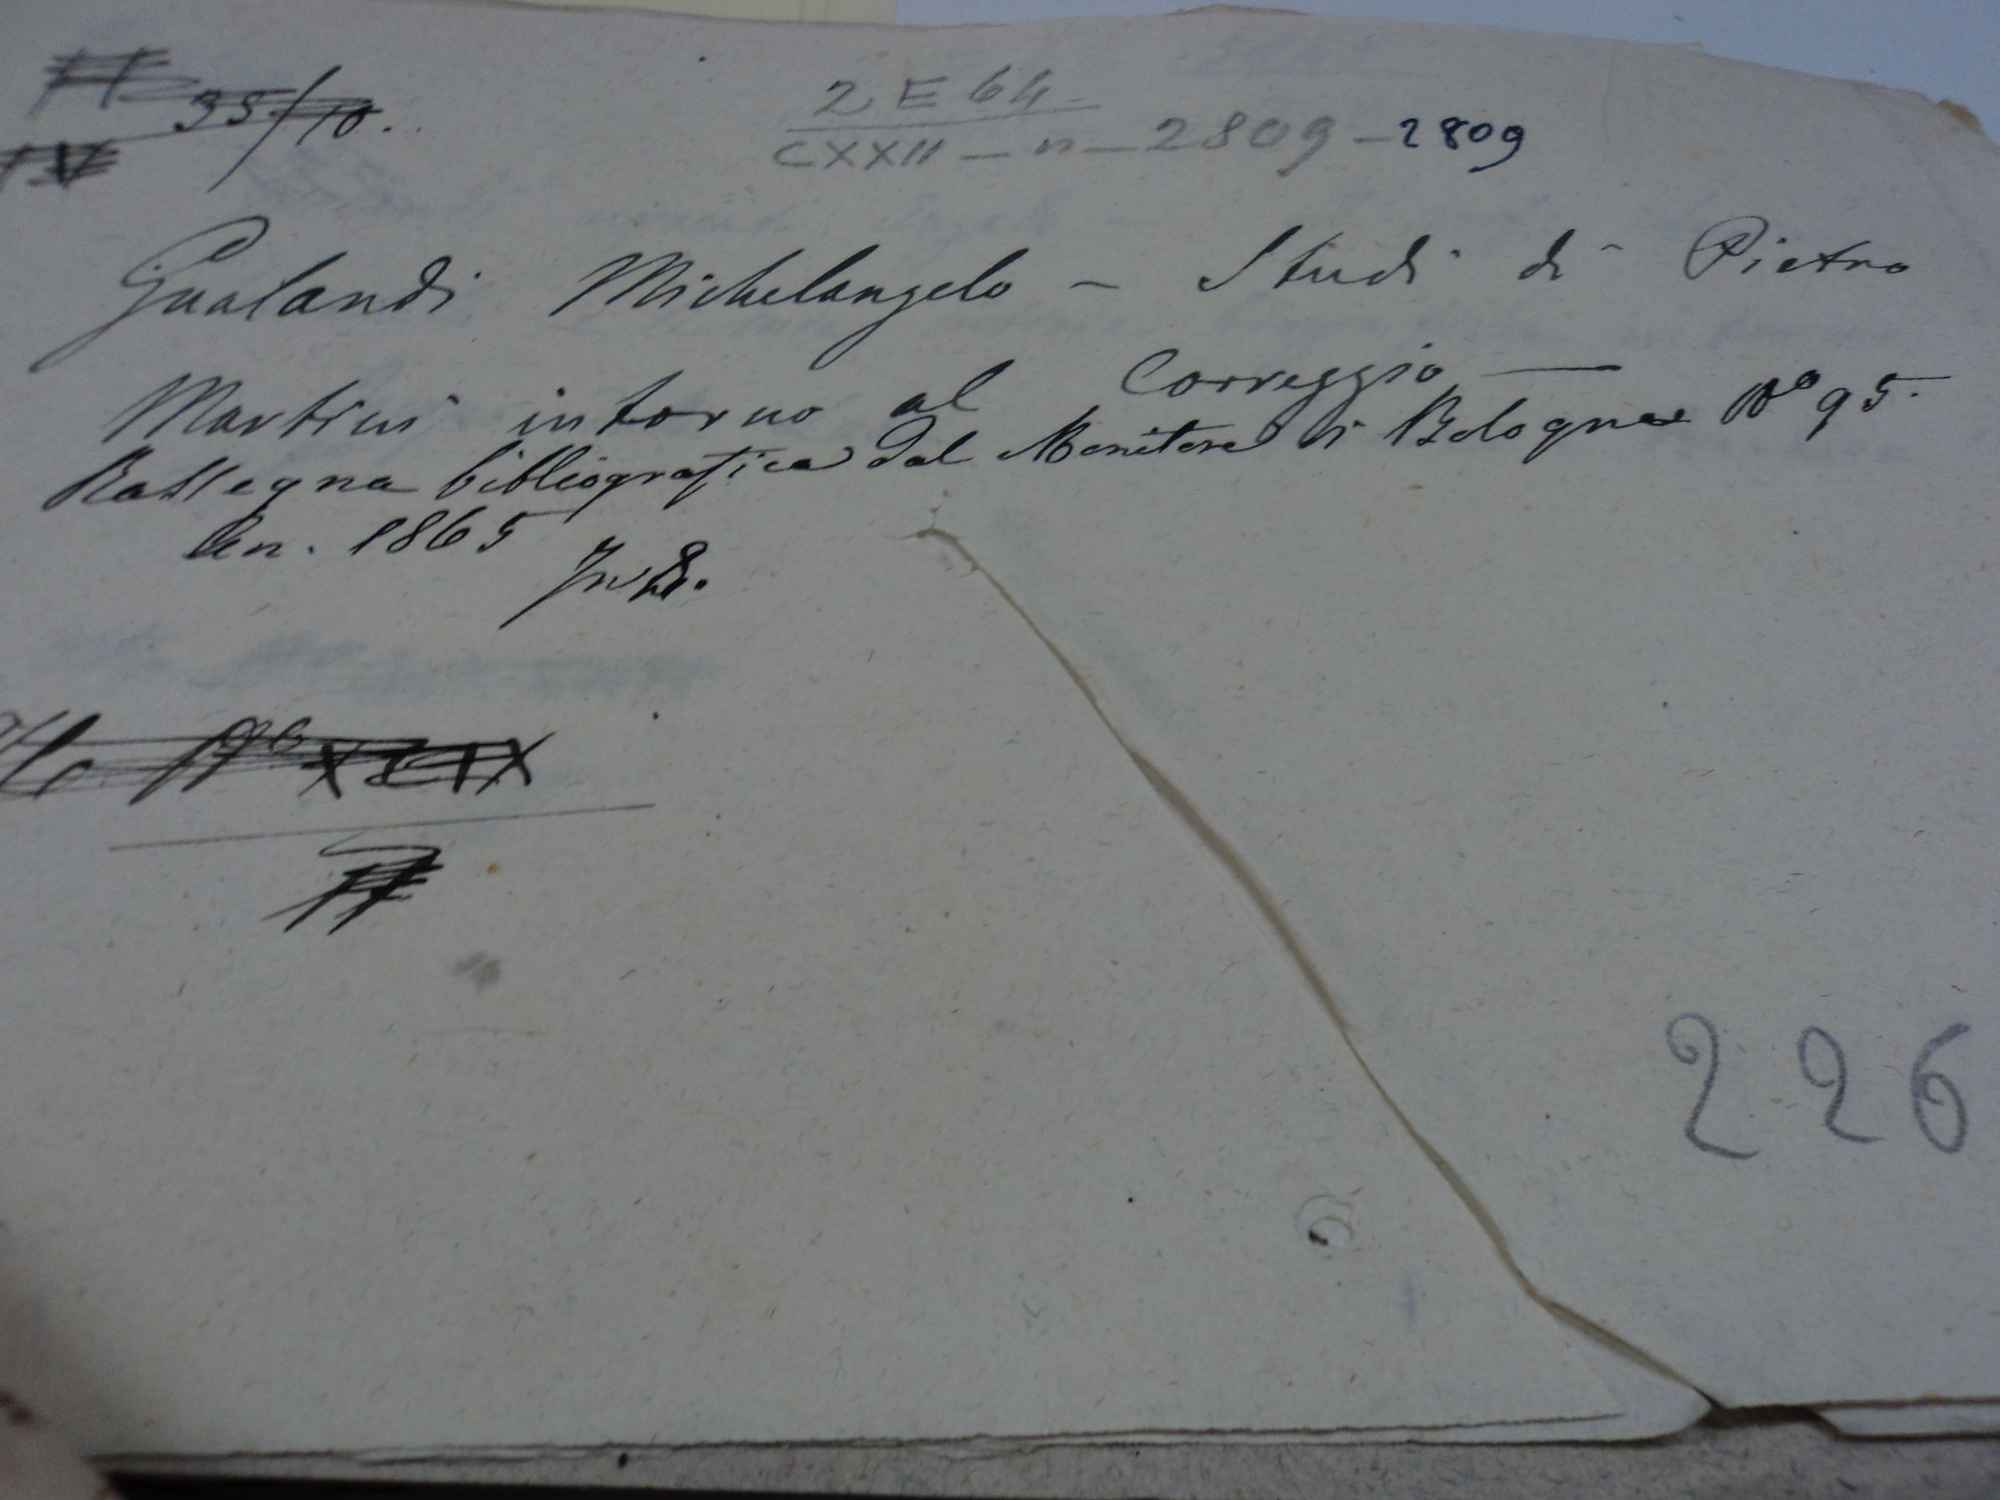 35/10.
2 E 64
CXXII - n - 2809 - 2809
Gualandi Michelangelo - Studi di Pietro
Martini intorno al Correggio -
Rassegna bibliografica dal Monitore di Bologna No 95.
An. 1865
In 8.
226